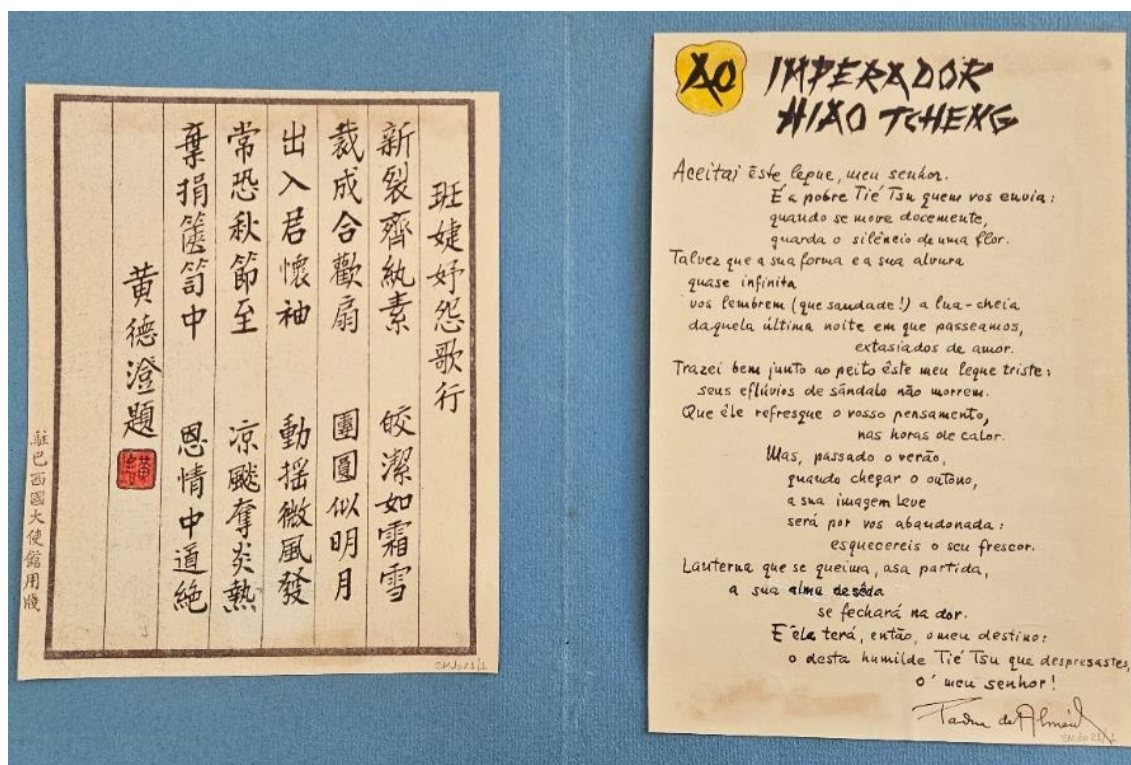 班婕妤怨歌行
新裂齊紈素 皎潔如霜雪
裁成合歡扇 團圓似明月
出入君懷袖 動搖微風發
常恐秋節至 凉飈奪炎熱
棄捐篋笥中 恩情中道絶
黄德澄題
駐巴西國大使館用牋
AO IMPERADOR
HIAO TCHENG
Aceitai êste leque, meu senhor.
É a pobre Tié Tsu quem vos envia:
quando se move docemente,
guarda o silêncio de uma flor.
Talvez que a sua forma e a sua alvura
quase infinita
vos lembrem (que saudade!) a lua-cheia
daquela última noite em que passeamos,
extasiados de amor.
Trazei bem junto ao peito êste meu leque triste:
seus eflúvios de sândalo não morrem.
Que êle refresque o vosso pensamento,
nas horas de calor.
Mas, passado o verão,
quando chegar o outôno,
a sua imagem leve
será por vos abandonada:
esquecereis o seu frescor.
Lanterna que se queima, asa partida,
a sua alma de sêda
se fechará na dor.
E êle terá, então, o meu destino:
o desta humilde Tié Tsu que despresastes,
o' meu senhor!
Padua de Almeida